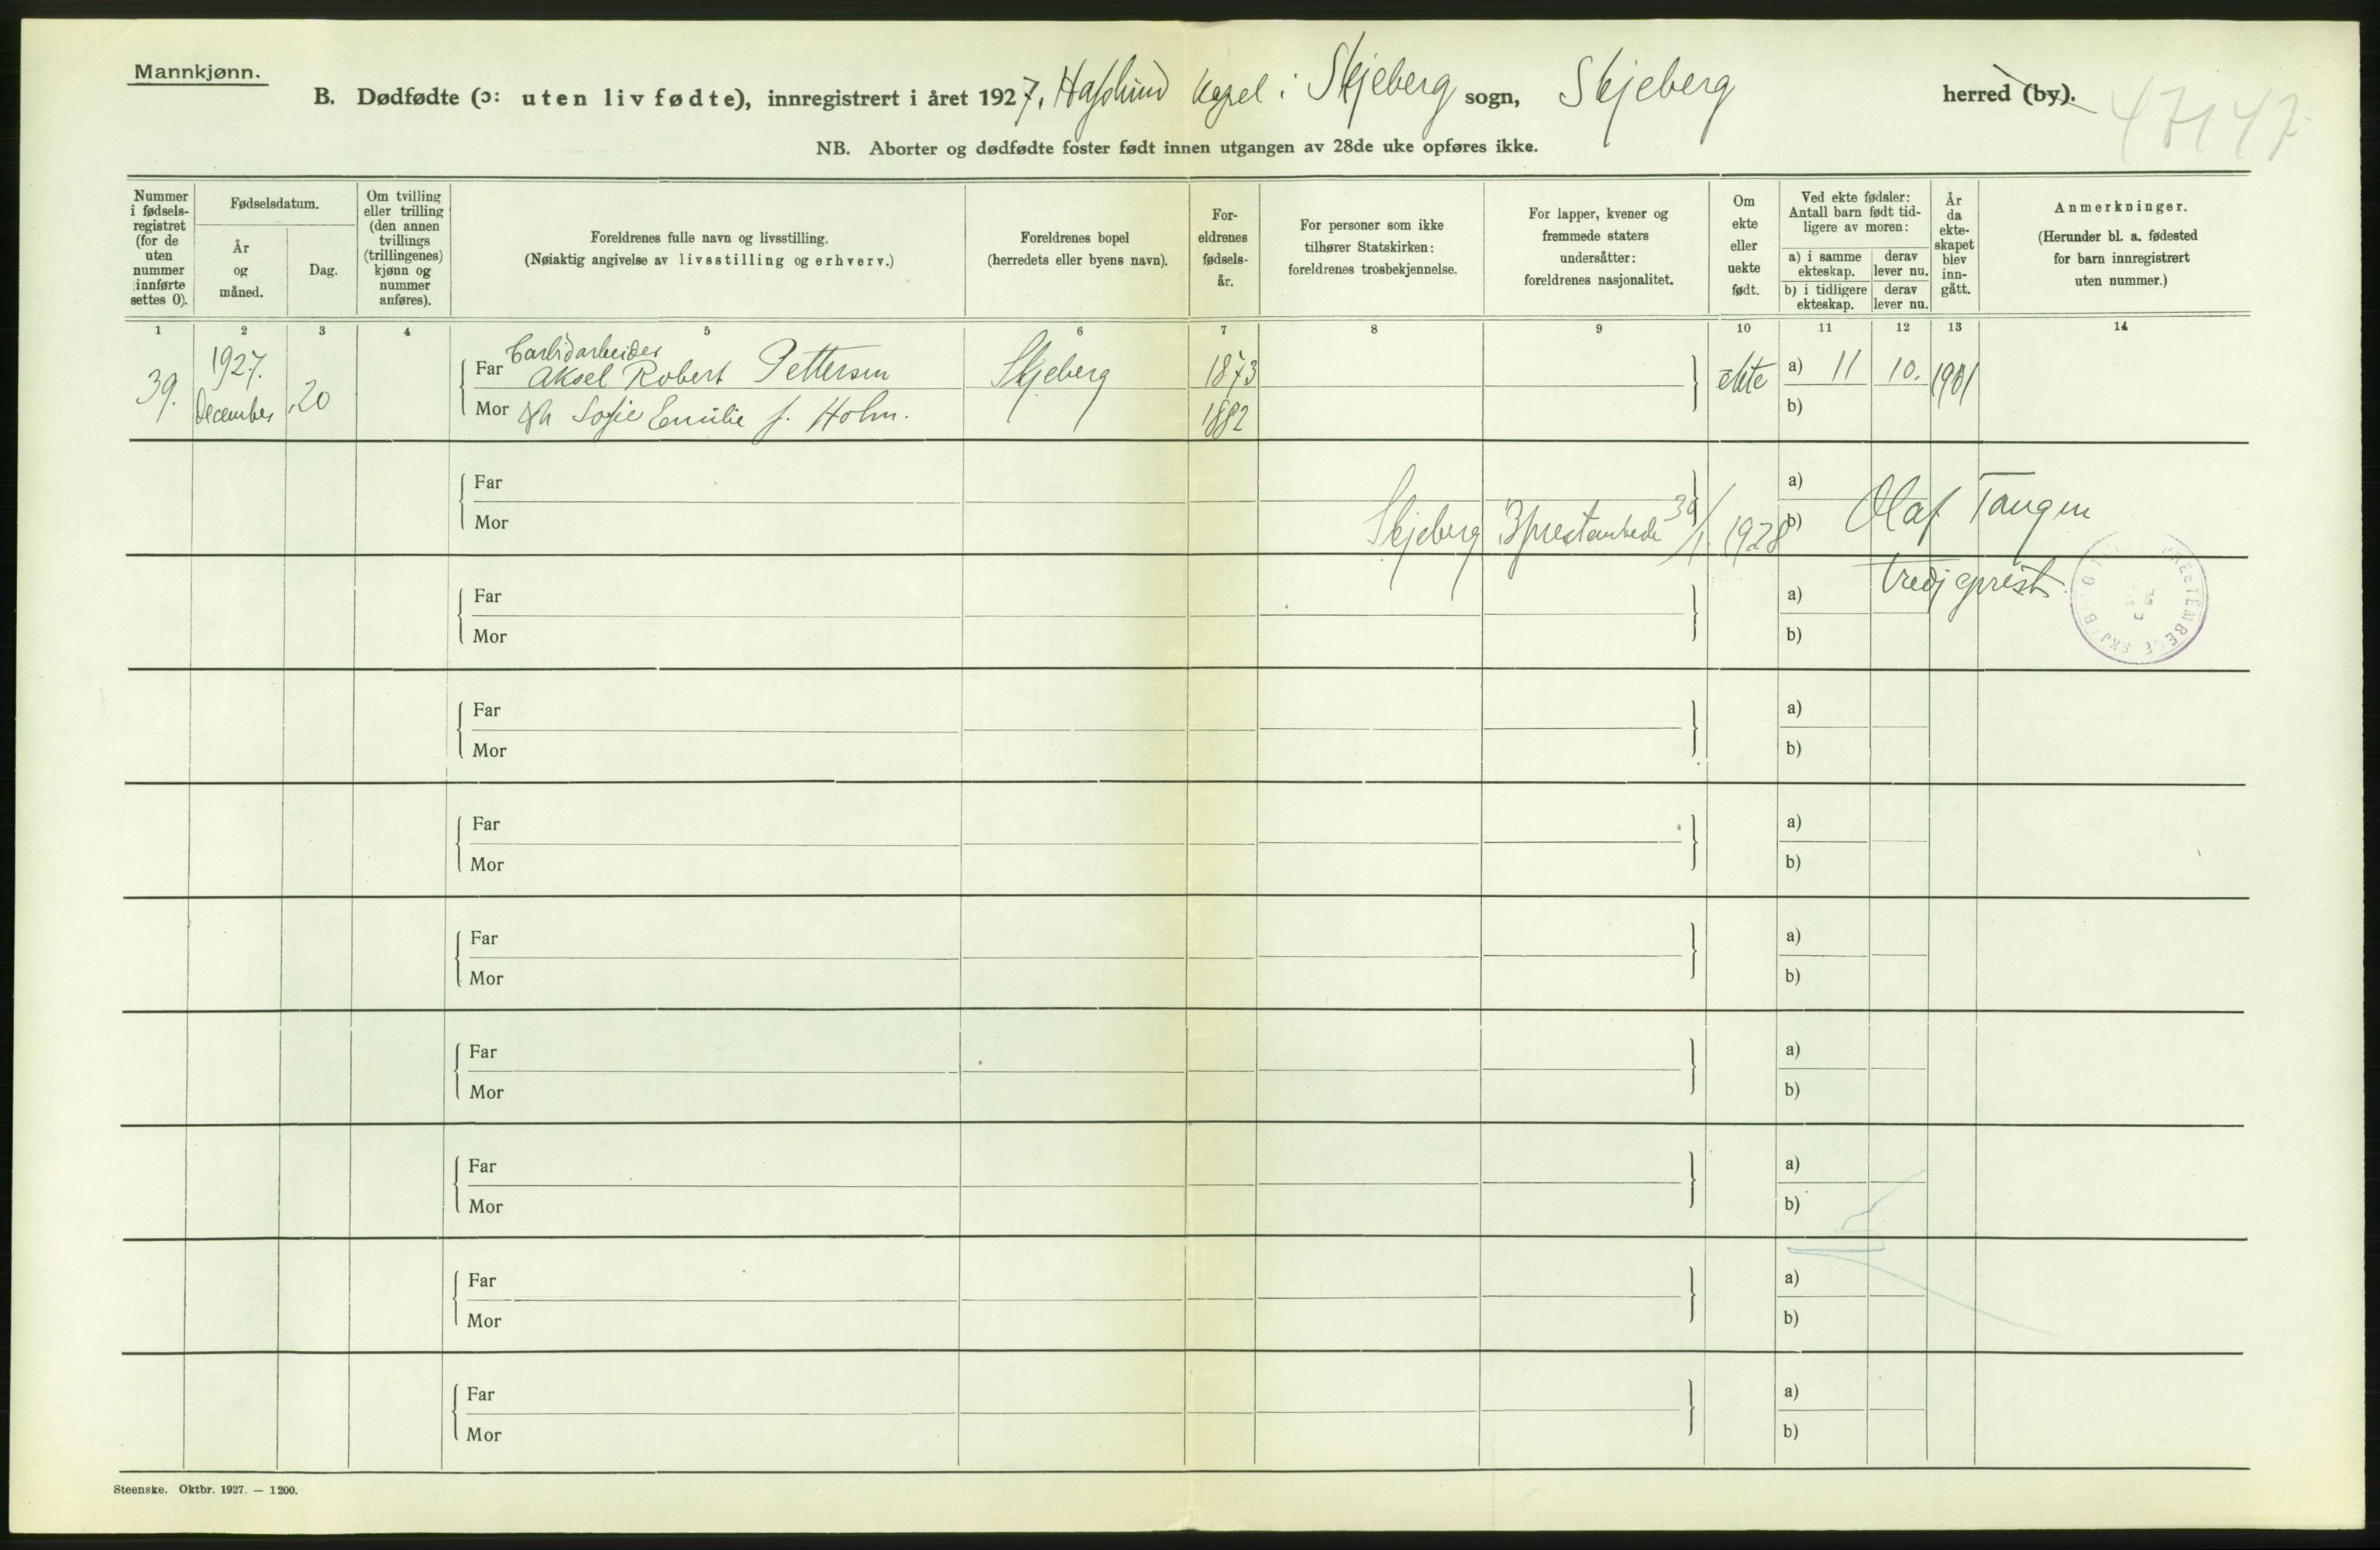 Mannkjønn.
B. Dødfødte (ɔ: uten liv fødte), innregistrert i året 1927, Hafslund Kapel i Skjeberg sogn, Skjeberg herred (by).
47147
NB. Aborter og dødfødte foster født innen utgangen av 28de uke opføres ikke.
Nummer i fødsels-registret (for de uten nummer innførte settes 0).
Fødselsdatum.
År og måned.
Dag.
Om tvilling eller trilling (den annen tvillings (trillingenes) kjønn og nummer anføres).
Foreldrenes fulle navn og livsstilling.
(Nøiaktig angivelse av livsstilling og erhverv.)
Foreldrenes bopel
(herredets eller byens navn).
For-eldrenes fødsels-år.
For personer som ikke tilhører Statskirken: foreldrenes trosbekjennelse.
For lapper, kvener og fremmede staters undersåtter: foreldrenes nasjonalitet.
Om ekte eller uekte født.
Ved ekte fødsler: Antall barn født tid-ligere av moren:
a) i samme ekteskap.
derav lever nu.
b) i tidligere ekteskap.
derav lever nu.
År da ekte-skapet blev inn-gått.
Anmerkninger.
(Herunder bl. a. fødested for barn innregistrert uten nummer.)
1 2 3 4 5 6 7 8 9 10 11 12 13 14
39. 1927. December 20
Carbidarbeider
Far Aksel Robert Pettersen Skjeberg 1873 ekte a) 11 10. 1901
Mor Sofie Emilie f. Holm. 1882 b)
Far a)
Mor b)
Skjeberg 3prestembede 30/1 1928 Olaf Tangen
tredjeprest
Far a)
Mor b)
Far a)
Mor b)
Far a)
Mor b)
Far a)
Mor b)
Far a)
Mor b)
Far a)
Mor b)
Far a)
Mor b)
Far a)
Mor b)
Steenske. Oktbr. 1927. — 1200.